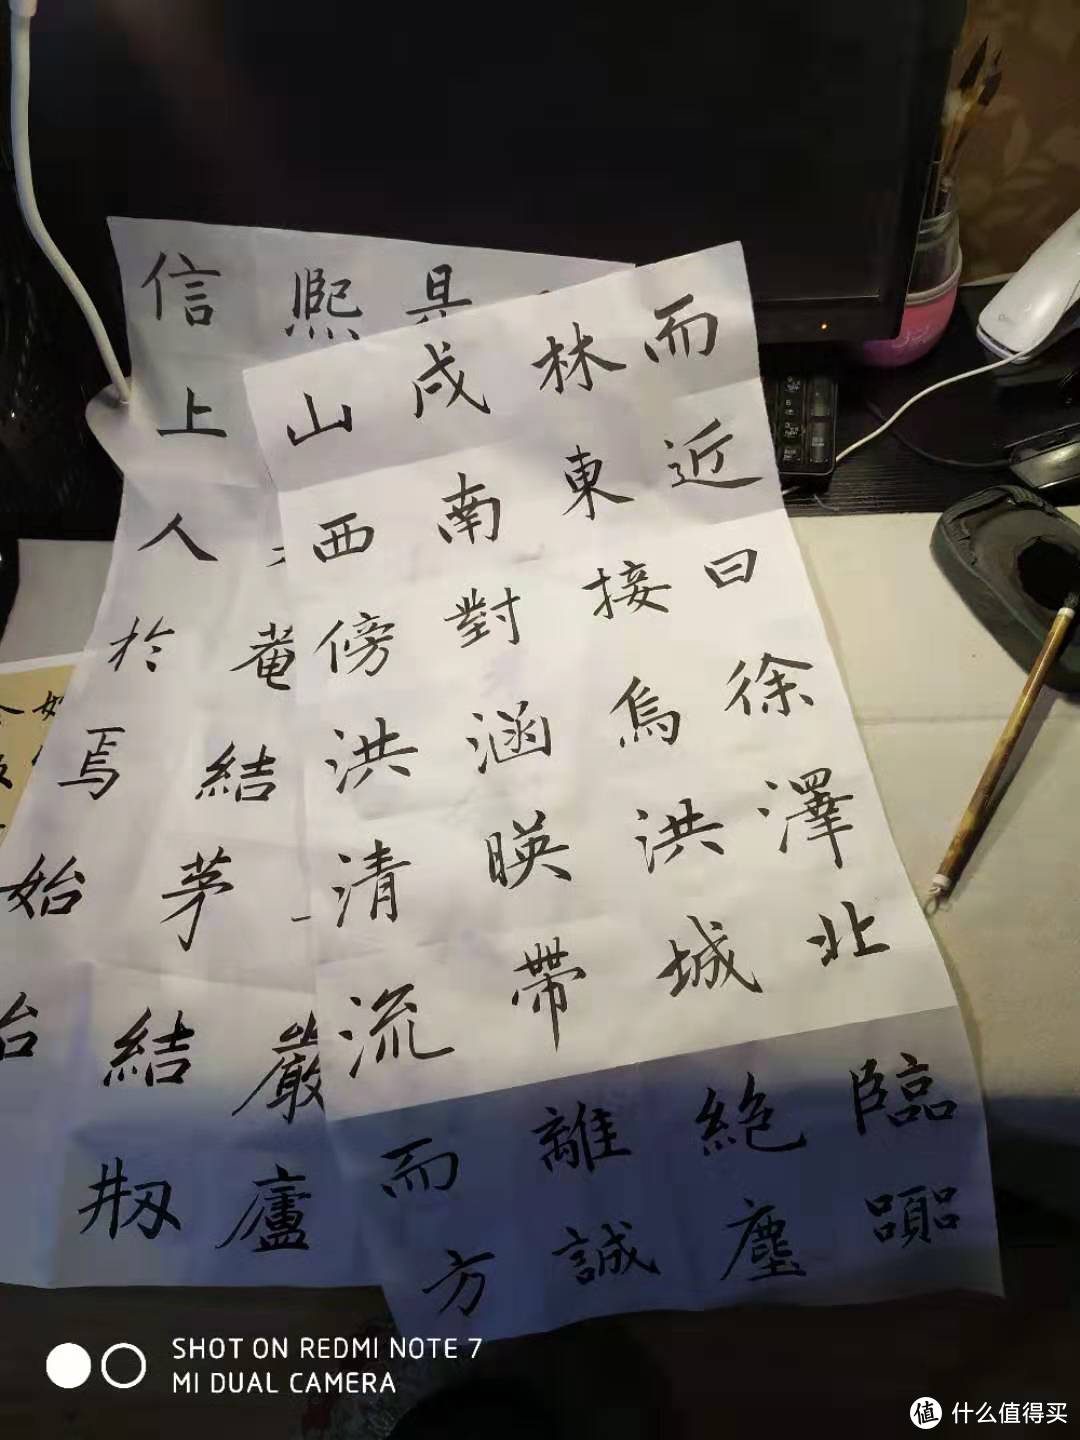 而近曰徐澤北臨囂
林東接烏洪城絕塵
戌南對涵暎帶離誠
山西傍洪清流而方
具嚴廬
熙菴結茅結剏
信上人於焉始
SHOT ON REDMI NOTE 7
MI DUAL CAMERA
值 什么值得买